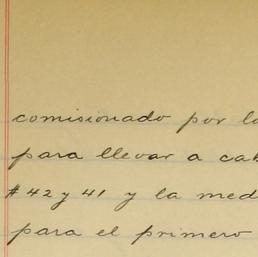 comisionado por
para llevar a
#42 y 41 y la
para el primero